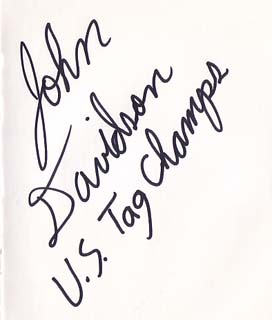 John
Davidson
U.S. Tag Champs